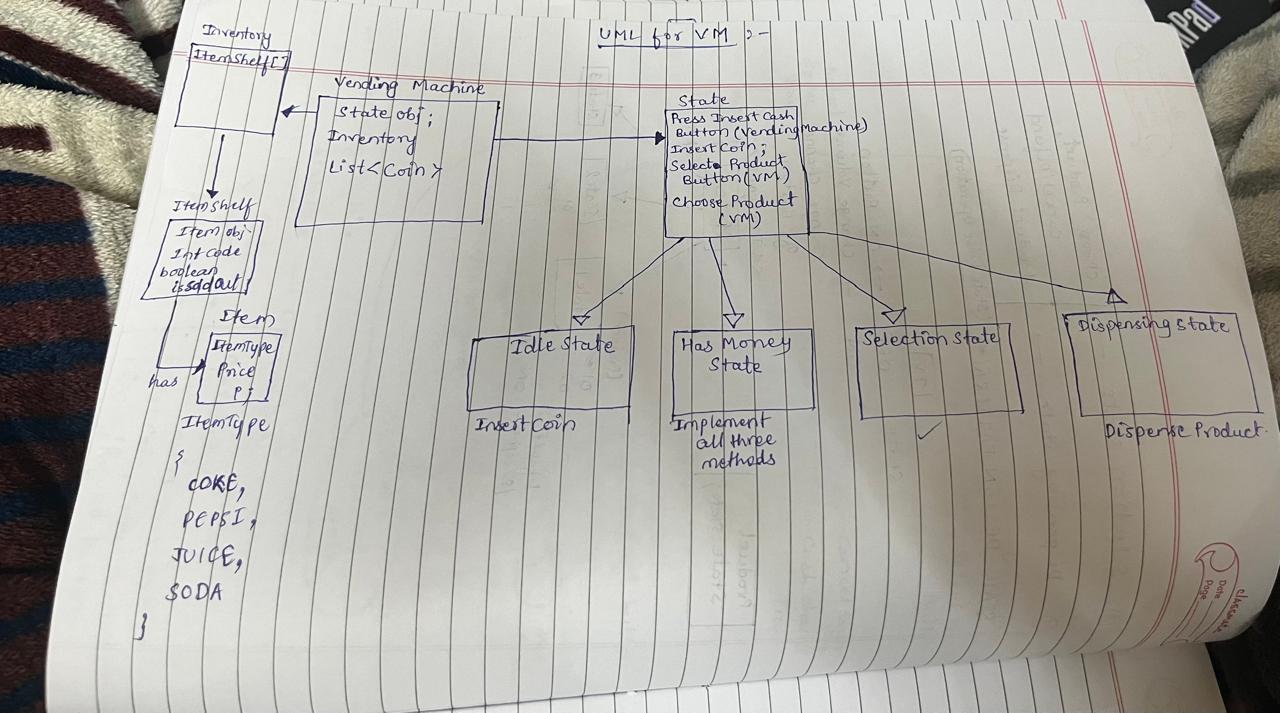 UML for VM :-
Inventory
ItemShelf[]
Vending Machine
State obj;
Inventory
List<Coin>
State
Press Insert Cash
Button (Vending Machine)
Insert Coin;
Select Product
Button (VM)
Choose Product
(VM)
ItemShelf
Item obj
Int code
boolean
issoldout
has
Item
ItemType
Price
P;
ItemType
{
COKE,
PEPSI,
JUICE,
SODA
}
Idle State
Insert Coin
Has Money
State
Implement
all three
methods
Selection State
Dispensing State
Dispense Product.
classmate
Date
Page
Pad